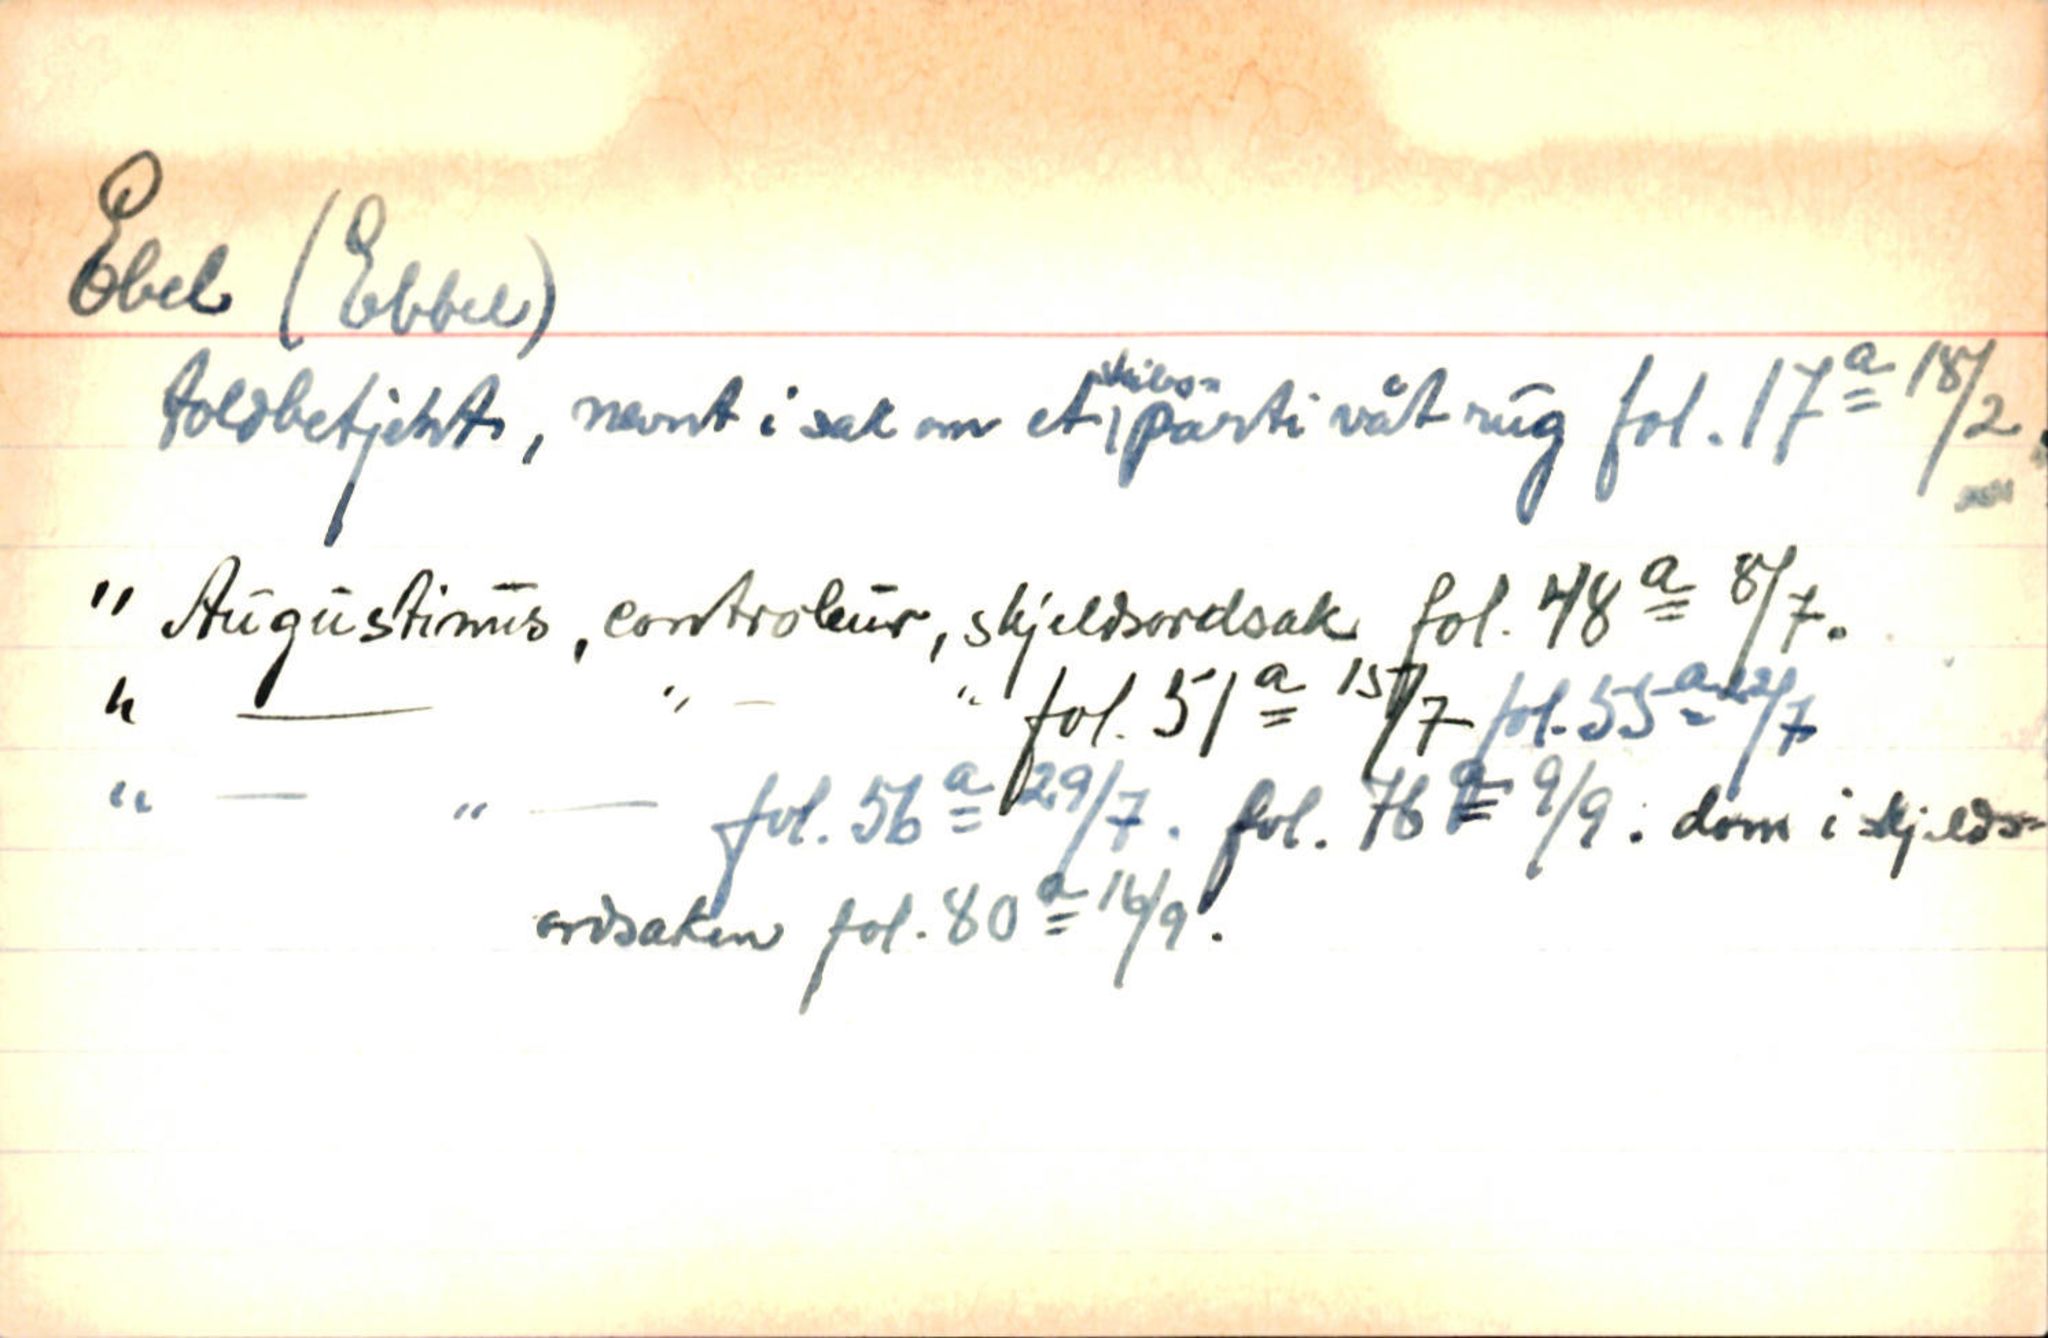 Ebel (Ebbel)
toldbetjent, nevnt i sak om et skibs= parti våt rug fol. 17a 18/2.
" Augustinus, controleur, skjeldsordsak fol. 48a 8/7.
" — " — " fol. 51a 15/7 fol. 55a 22/7
" — " — fol. 56a 29/7. fol. 76a 9/9. dom i skjelds=
ordsaken fol. 80a 16/9.